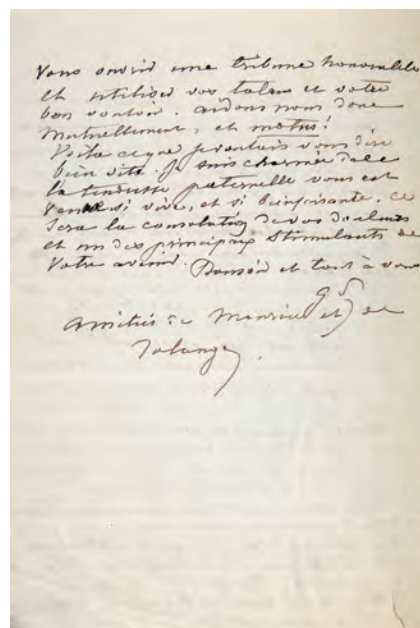 vous ouvrir une tribune honorable
et utiliser vos talens et votre
bon vouloir. aidons nous donc
mutuellement, et motus!
Voila ce que je voulais vous dire
bien vite. Je suis charmée de ce que
la tendresse paternelle vous est
venue si vive, et si bienfaisante. ce
sera la consolation de vos douleurs
et un des principaux stimulants de
votre avenir. Bonsoir et tout à vous
G S
amitiés de Maurice et de
Solange.